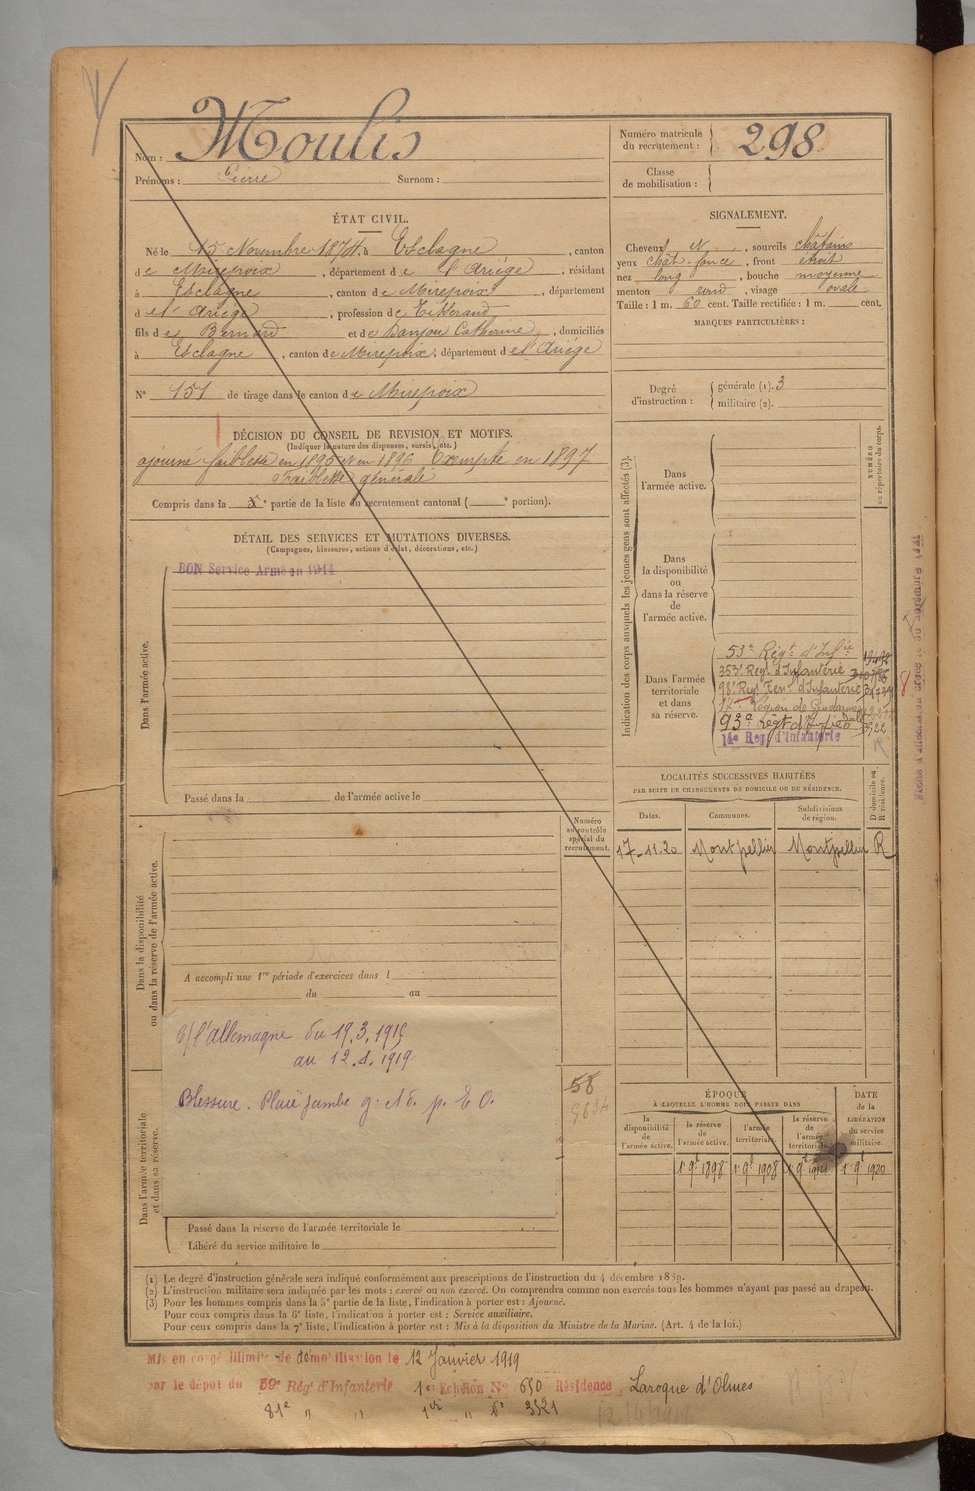 Nom : Moulis
Prénoms : Pierre Surnom :
Numéro matricule du recrutement : 298
Classe de mobilisation :
ÉTAT CIVIL.
Né le 15 Novembre 1874, à Esclagne, canton
de Mirepoix, département de l'Ariège, résidant
à Esclagne, canton de Mirepoix, département
de l'Ariège, profession de Tisserand
fils de Bernard et de Danjou Catherine, domiciliés
à Esclagne, canton de Mirepoix, département de l'Ariège
N° 151 de tirage dans le canton de Mirepoix
SIGNALEMENT.
Cheveux N, sourcils châtains
yeux chât. foncé, front étroit
nez long, bouche moyenne
menton rond, visage ovale
Taille : 1 m. 60 cent. Taille rectifiée : 1 m. cent.
MARQUES PARTICULIÈRES :
Degré d'instruction : générale (1). 3
militaire (2).
DÉCISION DU CONSEIL DE REVISION ET MOTIFS.
(Indiquer la nature des dispenses, sursis, etc.)
ajourné faiblesse en 1895 et en 1896 Exempté en 1897
Faiblesse générale
Compris dans la e partie de la liste du recrutement cantonal ( e portion).
DÉTAIL DES SERVICES ET MUTATIONS DIVERSES.
(Campagnes, blessures, actions d'éclat, décorations, etc.)
Dans l'armée active.
BON Service Armé en 1914
Passé dans la de l'armée active le
Indication des corps auxquels les jeunes gens sont affectés (3).
NUMÉRO au répertoire du corps.
Dans l'armée active.
Dans la disponibilité ou dans la réserve de l'armée active.
Dans l'armée territoriale et dans sa réserve.
53e Régt d'Infie
353e Regt d'Infanterie
98e Regt Terr. d'Infanterie
17e Légion de Gendarmerie
93e Régt d'Infie
14e Reg. d'Infanterie
3922
8
LOCALITÉS SUCCESSIVES HABITÉES
PAR SUITE DE CHANGEMENTS DE DOMICILE OU DE RÉSIDENCE.
Dates. Communes. Subdivisions de région. D domicile ou R résidence.
17-11-20 Montpellier Montpellier R
Dans la disponibilité ou dans la réserve de l'armée active.
Numéro au contrôle spécial du recrutement.
A accompli une 1re période d'exercices dans l
du au
Dans l'armée territoriale et dans sa réserve.
C/ l'Allemagne du 19.3.1915
au 12.1.1919
Blessure. Plaie jambe g.
58
Passé dans la réserve de l'armée territoriale le
Libéré du service militaire le
ÉPOQUE
À LAQUELLE L'HOMME DOIT PASSER DANS
la disponibilité de l'armée active.
la réserve de l'armée active.
l'armée territoriale.
la réserve de l'armée territoriale.
DATE de la LIBÉRATION du service militaire.
1er 9e 1898 1er 9e 1908 1er 9e 1914 1er 9e 1920
(1) Le degré d'instruction générale sera indiqué conformément aux prescriptions de l'instruction du 4 décembre 1889.
(2) L'instruction militaire sera indiquée par les mots : exercé ou non exercé. On comprendra comme non exercés tous les hommes n'ayant pas passé au drapeau.
(3) Pour les hommes compris dans la 5e partie de la liste, l'indication à porter est : Ajourné.
Pour ceux compris dans la 6e liste, l'indication à porter est : Service auxiliaire.
Pour ceux compris dans la 7e liste, l'indication à porter est : Mis à la disposition du Ministre de la Marine. (Art. 4 de la loi.)
Mis en congé illimité de démobilisation le 12 Janvier 1919
par le dépôt du 59e Régt d'Infanterie 1er Echelon No 650 Résidence Laroque d'Olmes
81e " " 1er " do 3521